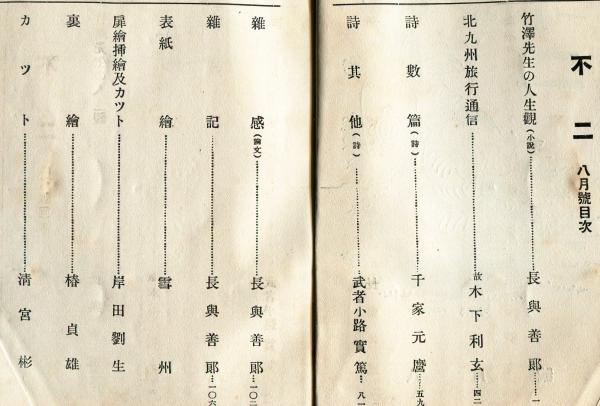 不二 八月號目次
竹澤先生の人生觀(小說)……長與善郞…一
北九州旅行通信……故木下利玄…四二
詩數篇(詩)……千家元麿…五九
詩其他(詩)……武者小路實篤…八一
雜感(論文)……長與善郞…一〇二
雜記……長與善郞…一〇六
表紙繪……雪州
扉繪揷繪及カツト……岸田劉生
裏繪……椿貞雄
カツト……淸宮彬